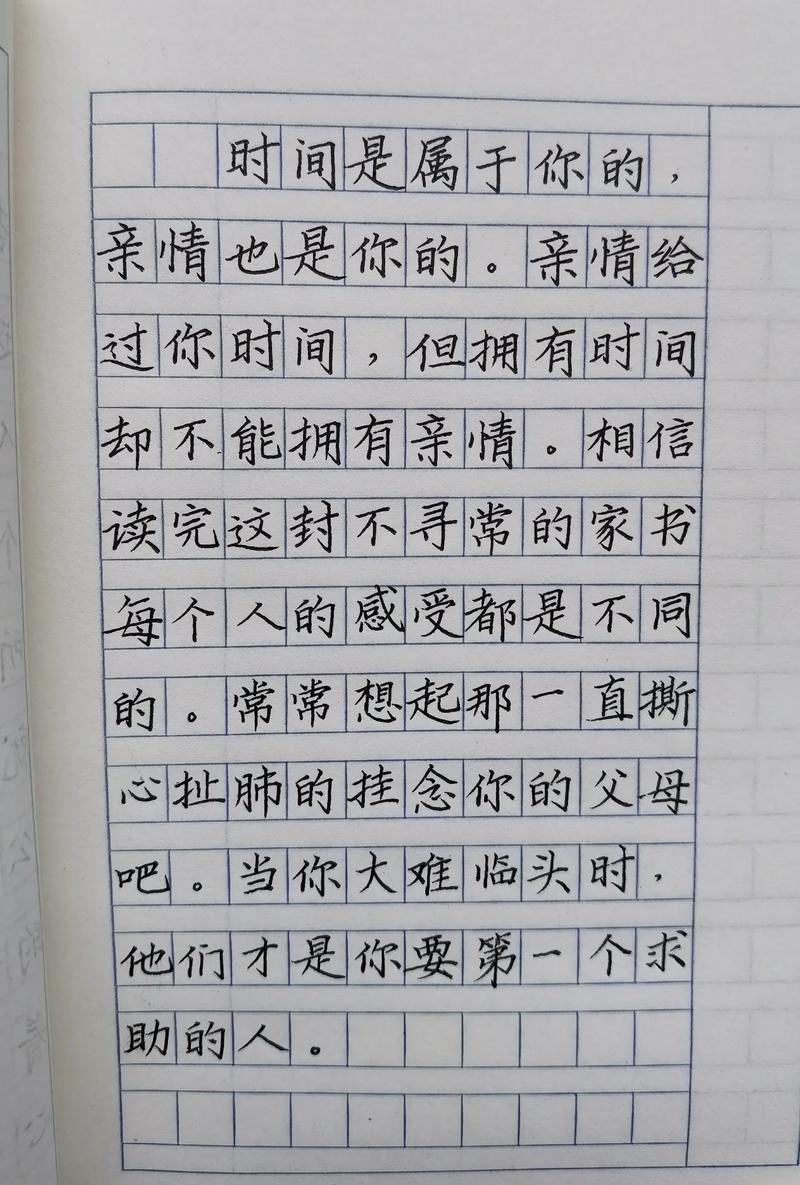 时间是属于你的，
亲情也是你的。亲情给
过你时间，但拥有时间
却不能拥有亲情。相信
读完这封不寻常的家书
每个人的感受都是不同
的。常常想起那一直撕
心扯肺的挂念你的父母
吧。当你大难临头时，
他们才是你要第一个求
助的人。